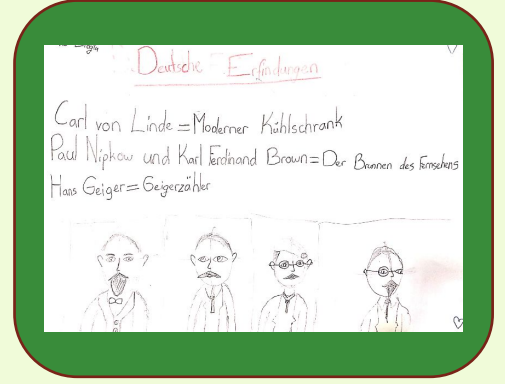 Deutsche Erfindungen
Carl von Linde = Moderner Kühlschrank
Paul Nipkow und Karl Ferdinand Brown = Der Brunnen des Fernsehens
Hans Geiger = Geigerzähler